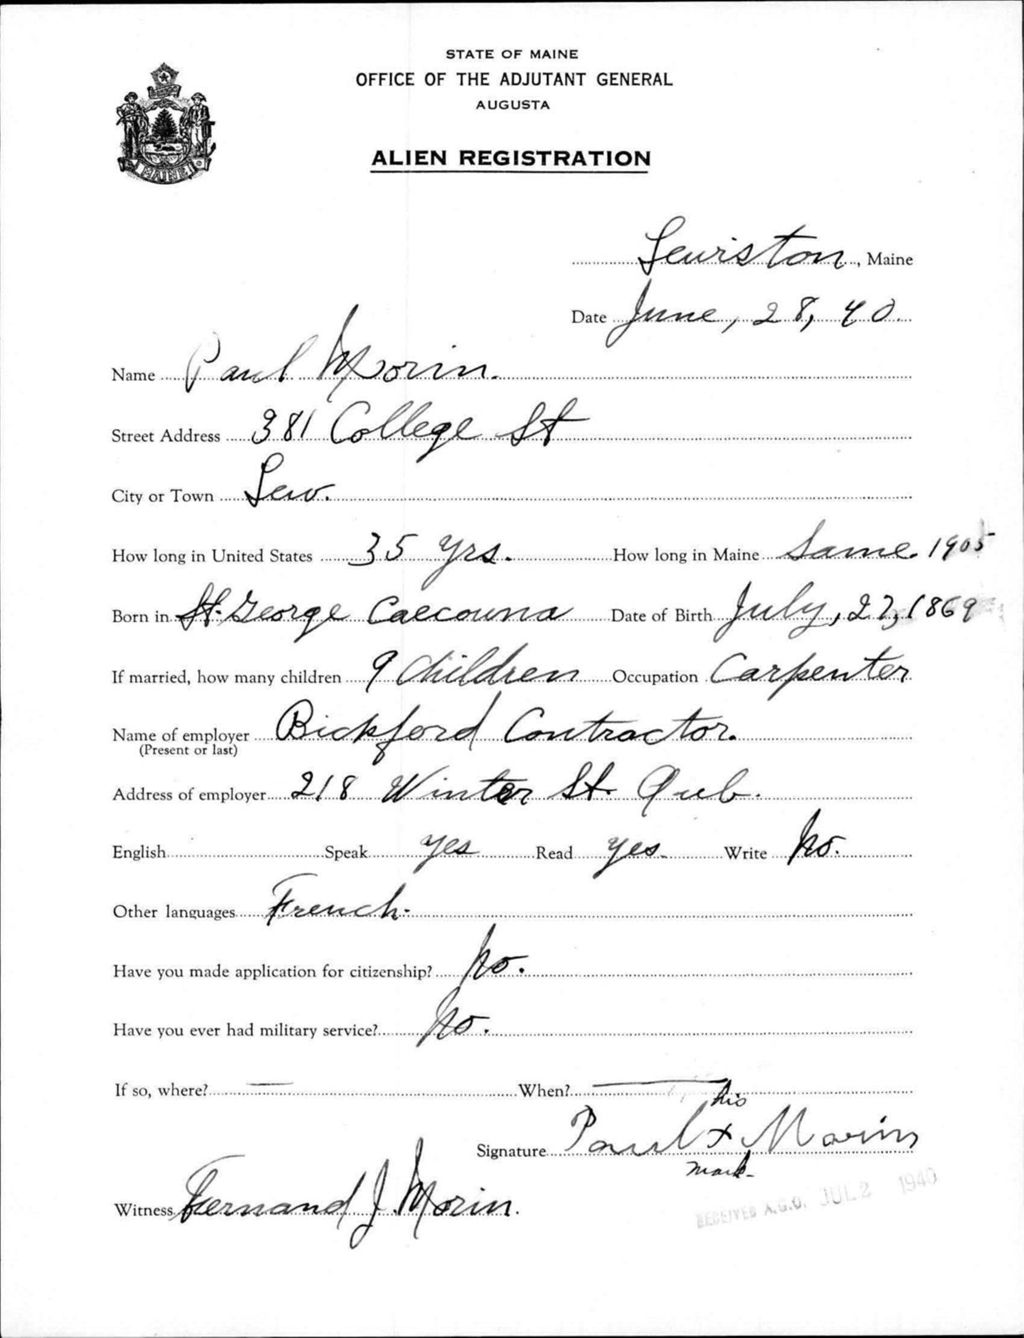 STATE OF MAINE
OFFICE OF THE ADJUTANT GENERAL
AUGUSTA
ALIEN REGISTRATION
MAINE
Lewiston, Maine
Date June, 28, 40
Name Paul Morin.
Street Address 381 College St
City or Town Lew.
How long in United States 35 yrs. How long in Maine Same. 1905
Born in St. George Caecouna Date of Birth July, 27, 1869
If married, how many children 9 Children Occupation Carpenter
Name of employer Bickford Contractor.
(Present or last)
Address of employer 218 Winter St. Aub.
English Speak yes Read yes. Write No.
Other languages French.
Have you made application for citizenship? No.
Have you ever had military service? No.
If so, where? — When? —
his
Signature Paul x Morin
mark
Witness Fernand J. Morin.
RECEIVED A.G.O. JUL 2 1940